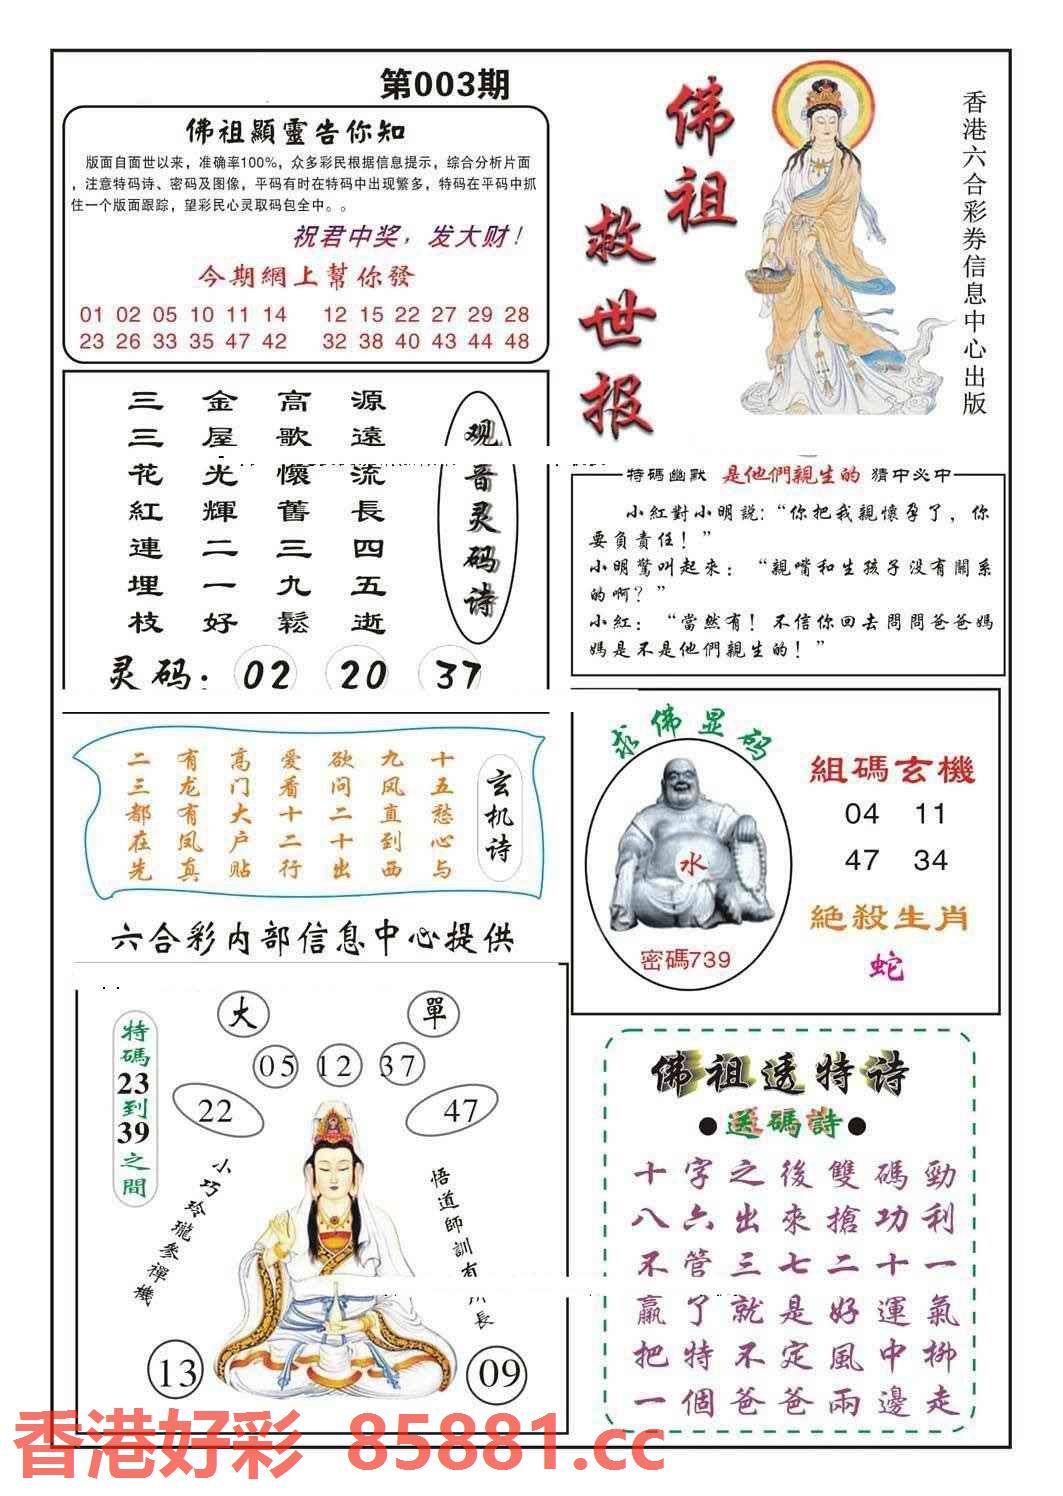 第003期
佛祖顯靈告你知
版面自面世以来，准确率100%，众多彩民根据信息提示，综合分析片面
，注意特码诗、密码及图像，平码有时在特码中出现繁多，特码在平码中抓
住一个版面跟踪，望彩民心灵取码包全中。。
祝君中奖，发大财！
今期網上幫你發
01 02 05 10 11 14 12 15 22 27 29 28
23 26 33 35 47 42 32 38 40 43 44 48
佛祖
救世报
香港六合彩券信息中心出版
观音灵码诗
源遠流長四五逝
高歌懷舊三九鬆
金屋光輝二一好
三三花紅連埋枝
灵码：02 20 37
特碼幽默 是他們親生的 猜中必中
小紅對小明說：“你把我親懷孕了，你
要負責任！”
小明驚叫起來：“親嘴和生孩子沒有關系
的啊？”
小紅：“當然有！不信你回去問問爸爸媽
媽是不是他們親生的！”
玄机诗
十五愁心与
九风直到西
欲问二十出
爱看十二行
高门大户贴
有龙有凤真
二三都在先
六合彩内部信息中心提供
求佛显码
水
密碼739
組碼玄機
04 11
47 34
絕殺生肖
蛇
大 單
05 12 37
22 47
特碼23到39之間
小巧玲瓏參禪機
悟道師訓有
長
13 09
佛祖透特诗
●送碼詩●
十字之後雙碼勁
八六出來搶功利
不管三七二十一
贏了就是好運氣
把特不定風中柳
一個爸爸兩邊走
香港好彩 85881.cc